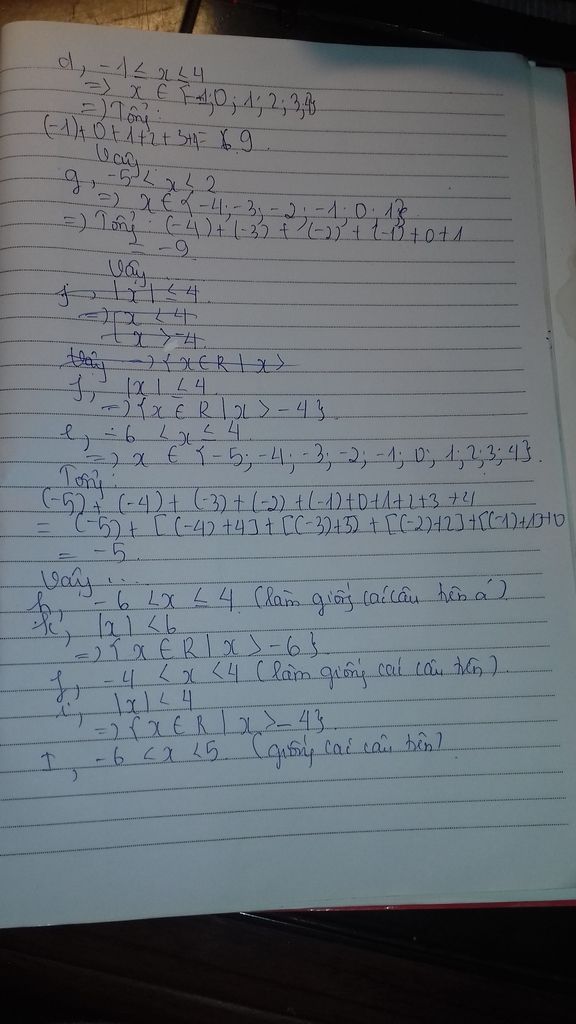 d, -1 ≤ x ≤ 4
=> x ∈ {-1; 0; 1; 2; 3; 4}
=> Tổng:
(-1) + 0 + 1 + 2 + 3 + 4 = 9.
Vậy
g, -5 < x < 2
=> x ∈ {-4; -3; -2; -1; 0; 1}
=> Tổng: (-4) + (-3) + (-2) + (-1) + 0 + 1
= -9
Vậy
f, |x| ≤ 4
=> { x < 4
{ x > -4
Vậy => {x ∈ R | x >
f, |x| ≤ 4
=> {x ∈ R | x > -4}.
e, -6 < x ≤ 4
=> x ∈ {-5; -4; -3; -2; -1; 0; 1; 2; 3; 4}.
Tổng:
(-5) + (-4) + (-3) + (-2) + (-1) + 0 + 1 + 2 + 3 + 4
= (-5) + [(-4) + 4] + [(-3) + 3] + [(-2) + 2] + [(-1) + 1] + 0
= -5
Vậy ...
h, -6 < x ≤ 4 (làm giống cái câu trên á)
k, |x| < 6
=> {x ∈ R | x > -6}.
j, -4 < x < 4 (làm giống cái câu trên).
i, |x| < 4
=> {x ∈ R | x > -4}.
I, -6 < x < 5. (giống cái câu trên)